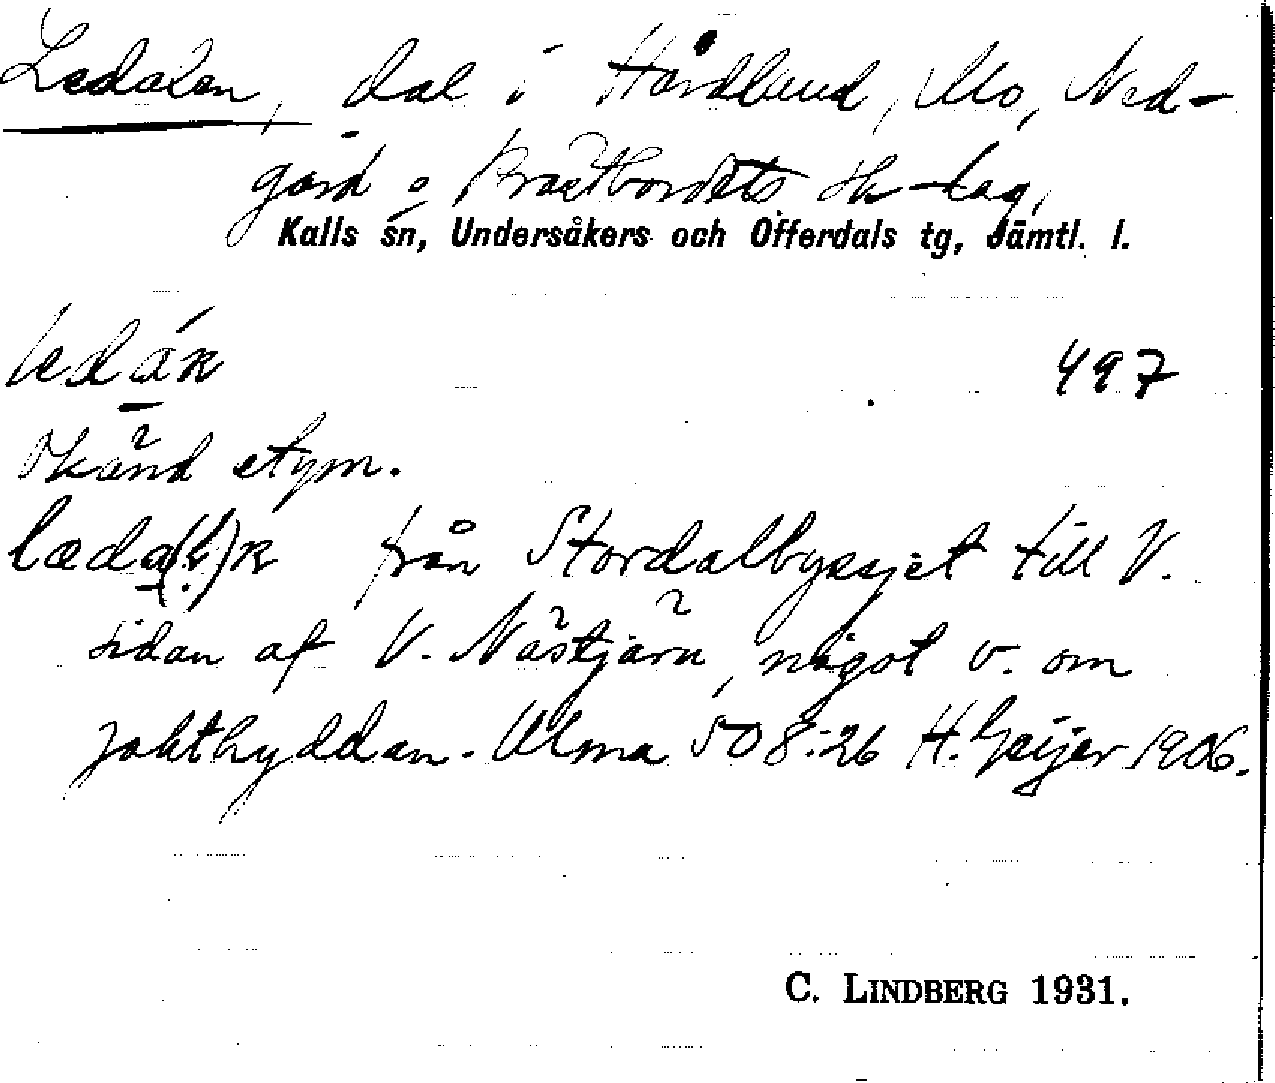 Ledalen, dal i Hårdlund, Mo, Ned-
gård o Prästbordets sk-lag,
Kalls sn, Undersåkers och Offerdals tg, Jämtl. l.
497
Okänd etym.
från Stordalbygsjet till V.
sidan af V. Nästjärn, något v. om
jakthyddan. Ulma 508:26 H. Geijer 1906.
C. LINDBERG 1931.